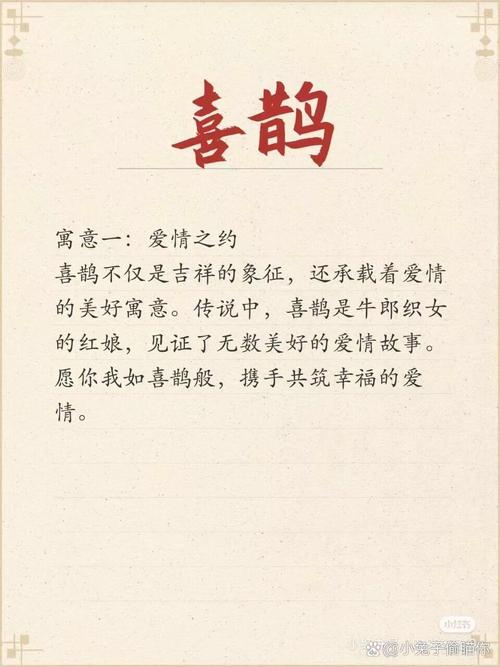 喜鹊
寓意一：爱情之约
喜鹊不仅是吉祥的象征，还承载着爱情
的美好寓意。传说中，喜鹊是牛郎织女
的红娘，见证了无数美好的爱情故事。
愿你我如喜鹊般，携手共筑幸福的爱
情。
小红书
@小兔子偷瞄你